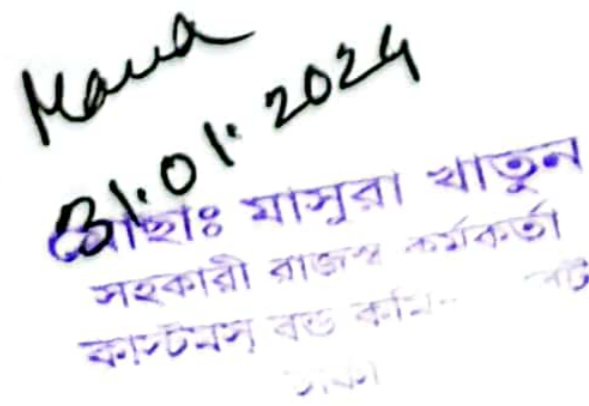 31.01.2024
মোছাঃ মাসুরা খাতুন
সহকারী রাজস্ব কর্মকর্তা
কাস্টমস্ বন্ড
ঢাকা